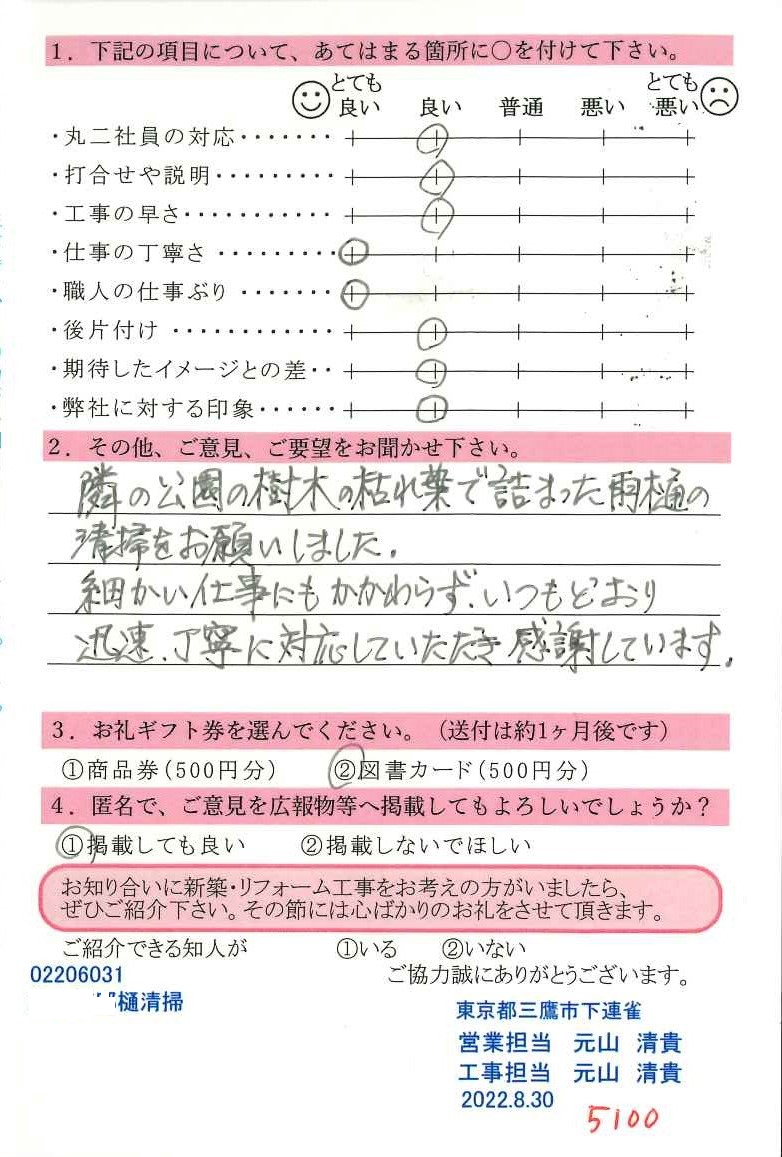 1．下記の項目について、あてはまる箇所に○を付けて下さい。
とても良い 良い 普通 悪い とても悪い
・丸二社員の対応・・・・・・・
・打合せや説明・・・・・・・・・
・工事の早さ・・・・・・・・・・・
・仕事の丁寧さ ・・・・・・・・・
・職人の仕事ぶり ・・・・・・・
・後片付け ・・・・・・・・・・・・
・期待したイメージとの差・・
・弊社に対する印象・・・・・・
2．その他、ご意見、ご要望をお聞かせ下さい。
隣の公園の樹木の枯れ葉で詰まった雨樋の
清掃をお願いしました。
細かい仕事にもかかわらず、いつもどおり
迅速、丁寧に対応していただき感謝しています。
3．お礼ギフト券を選んでください。（送付は約1ヶ月後です）
①商品券（500円分） ②図書カード（500円分）
4．匿名で、ご意見を広報物等へ掲載してもよろしいでしょうか？
①掲載しても良い ②掲載しないでほしい
お知り合いに新築・リフォーム工事をお考えの方がいましたら、
ぜひご紹介下さい。その節には心ばかりのお礼をさせて頂きます。
ご紹介できる知人が ①いる ②いない
02206031
ご協力誠にありがとうございます。
樋清掃
東京都三鷹市下連雀
営業担当 元山 清貴
工事担当 元山 清貴
2022.8.30
5100